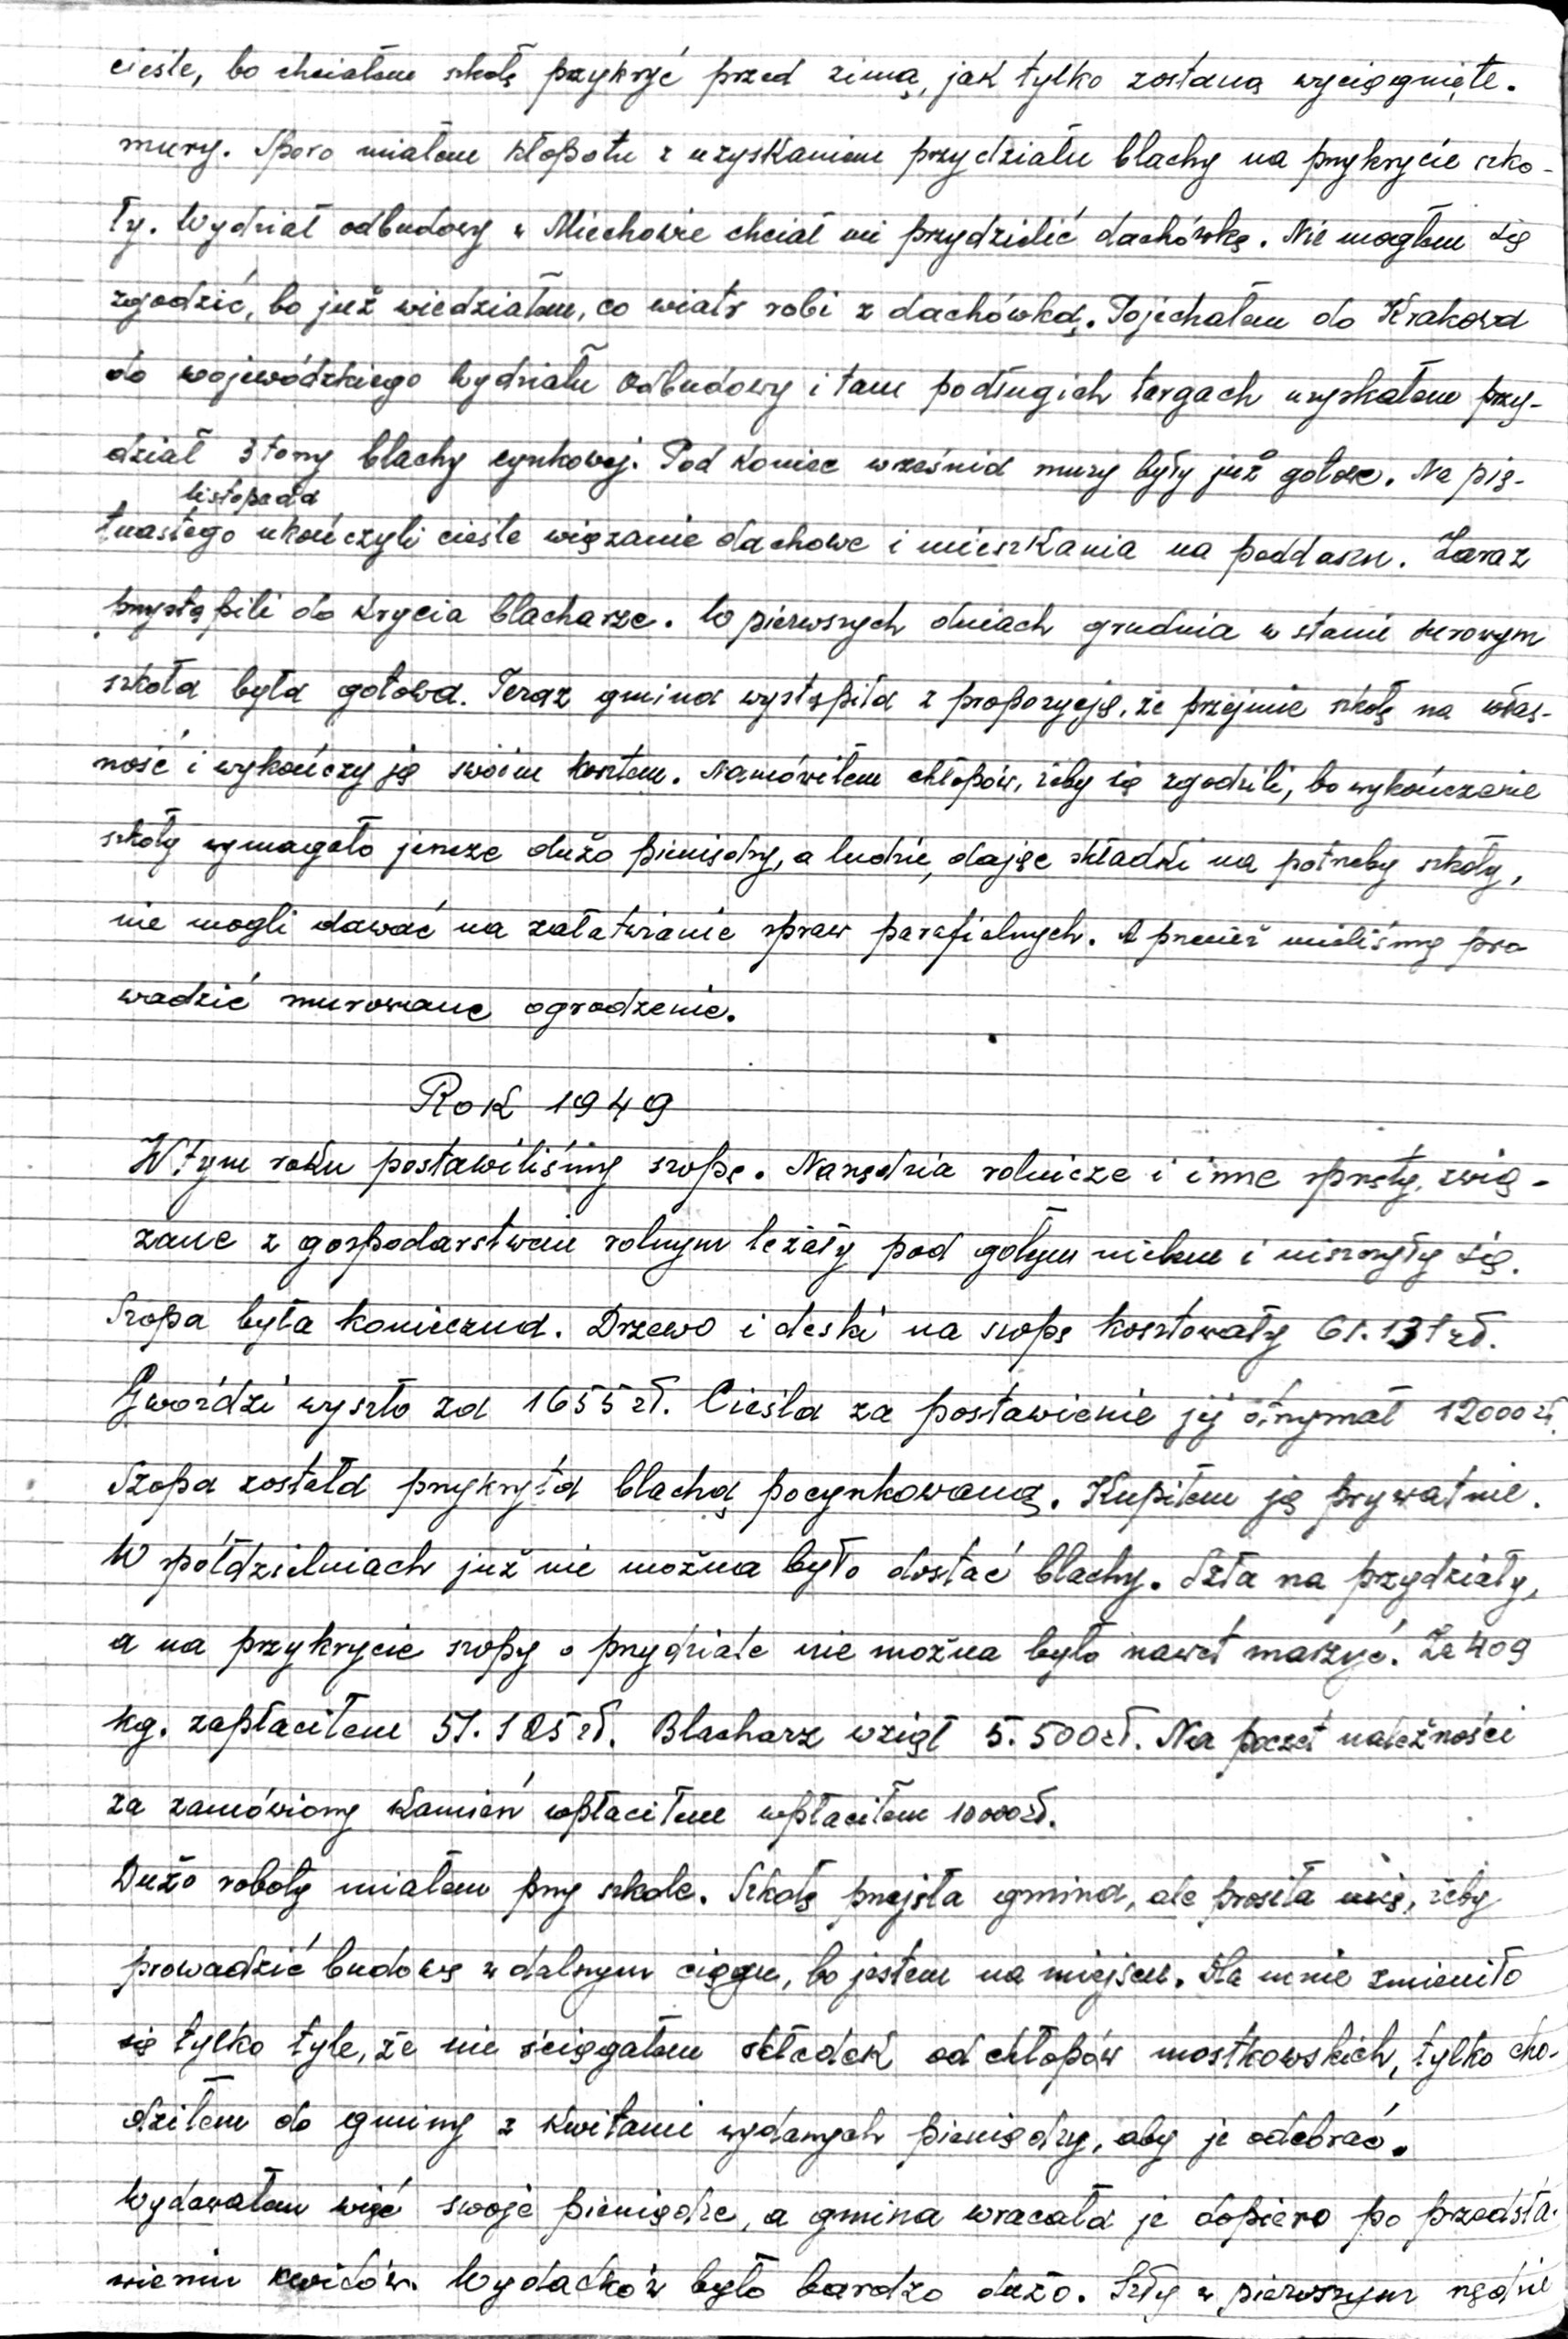 cieśle, bo chciałem szkołę przykryć przed zimą, jak tylko zostaną wyciągnięte.
mury. Sporo miałem kłopotu z uzyskaniem przydziału blachy na przykrycie szko-
ły. Wydział odbudowy w Miechowie chciał mi przydzielić dachówkę. Nie mogłem się
zgodzić, bo już wiedziałem, co wiatr robi z dachówką. Pojechałem do Krakowa
do wojewódzkiego wydziału odbudowy i tam podługich targach uzyskałem przy-
dział 3 tony blachy cynkowej. Pod koniec września mury były już gotowe. Na pię-
listopada
tnastego ukończyli cieśle wiązanie dachowe i mieszkania na poddaszu. Zaraz
przystąpili do krycia blacharze. W pierwszych dniach grudnia w stanie surowym
szkoła była gotowa. Teraz gmina wystąpiła z propozycją, że przejmie szkołę na włas-
ność i wykończy ją swoim kosztem. Namówiłem chłopów, żeby się zgodzili, bo wykończenie
szkoły wymagało jeszcze dużo pieniędzy, a ludzie, dając składki na potrzeby szkoły,
nie mogli dawać na załatwianie spraw parafialnych. A przecież mieliśmy pro
wadzić murowane ogrodzenie.
Rok 1949
W tym roku postawiliśmy szopę. Narzędzia rolnicze i inne sprzęty, zwią-
zane z gospodarstwem rolnym leżały pod gołym niebem i niszczyły się.
Szopa była konieczna. Drzewo i deski na szopę kosztowały 61.131 zł.
Gwoździ wyszło za 1655 zł. Cieśla za postawienie jej otrzymał 12000 zł.
Szopa została przykryta blachą pocynkowaną. Kupiłem ją prywatnie.
W spółdzielniach już nie można było dostać blachy. Szła na przydziały,
a na przykrycie szopy o przydziale nie można było nawet marzyć. Za 409
kg. zapłaciłem 51.125 zł. Blacharz wziął 5.500 zł. Na poczet należności
za zamówiony kamień wpłaciłem wpłaciłem 10000 zł.
Dużo roboty miałem przy szkole. Szkołę przejęła gmina, ale prosiła mię, żeby
prowadzić budowę w dalszym ciągu, bo jestem na miejscu. Dla mnie zmieniło
się tylko tyle, że nie ściągałem składek od chłopów mostkowskich, tylko cho-
dziłem do gminy z kwitami wydanych pieniędzy, aby je odebrać.
Wydawałem więc swoje pieniądze, a gmina wracała je dopiero po przedsta-
wieniu kwitów. Wydatków było bardzo dużo. Szły w pierwszym rzędzie